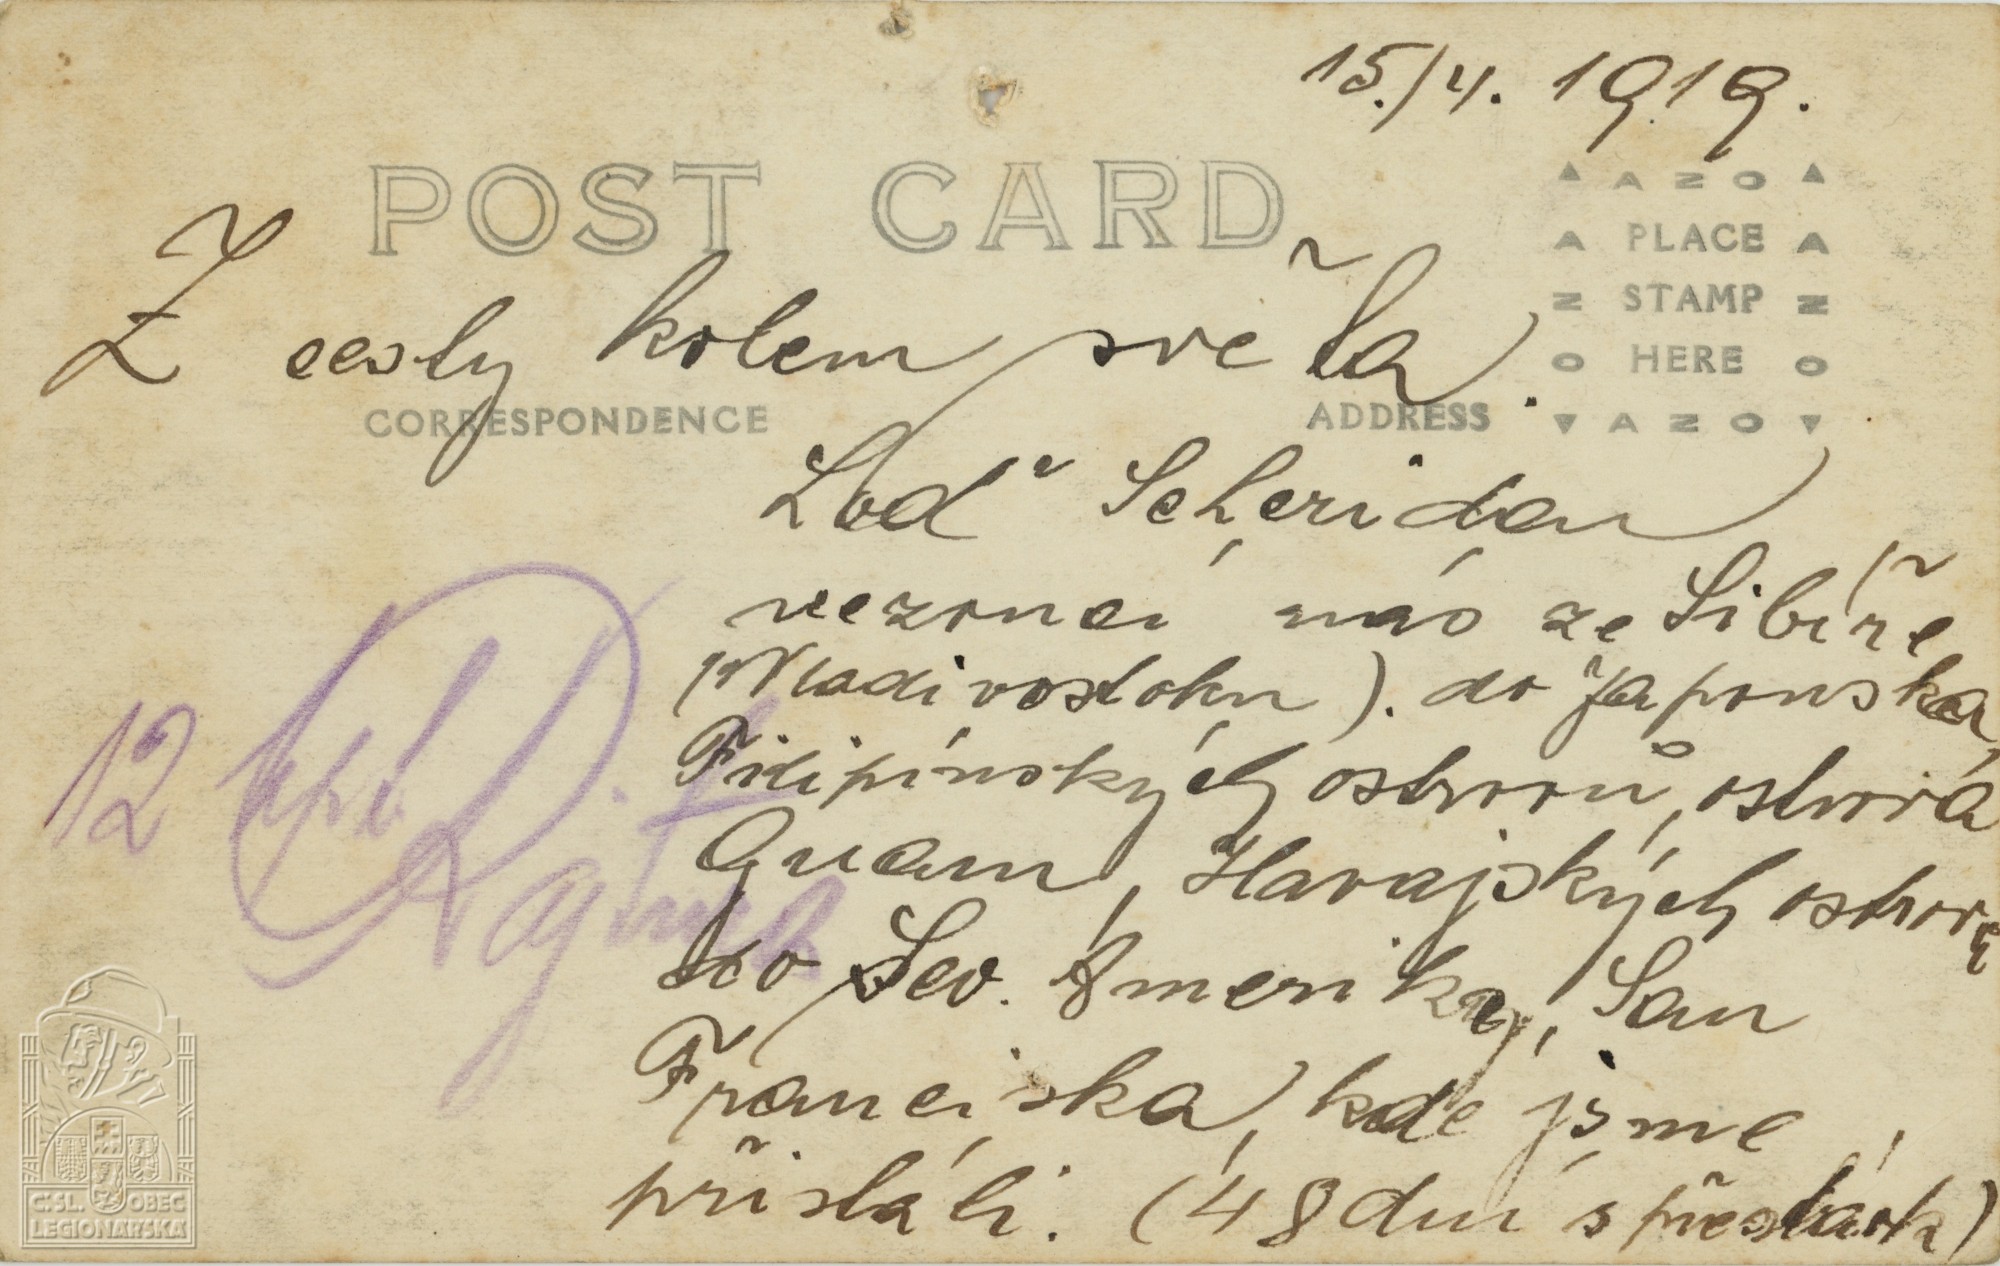 15./4. 1919.
POST CARD
AZO
PLACE
STAMP
HERE
AZO
Z cesty kolem světa.
CORRESPONDENCE
ADDRESS
Loď Scheridan
vezoucí nás ze Sibíře
(Vladivostoku). do Japonska,
Filipínských ostrovů, ostrova
Guam, Havajských ostrovů
do Sev. Ameriky, San
Franciska, kde jsme
přistáli. (48 dní s přestávk)
12
Č:SL. OBEC
LEGIONÁŘSKÁ